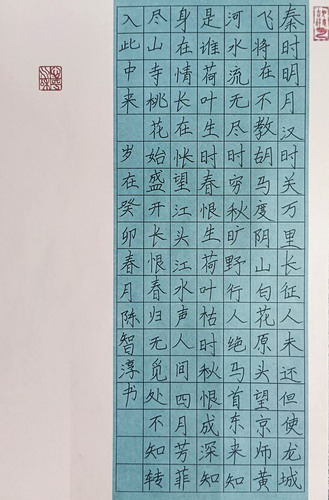 秦时明月汉时关万里长征人未还但使龙城
飞将在不教胡马度阴山白花原头望京师黄
河水流无尽时穷秋旷野行人绝马首东来知
是谁荷叶生时春恨生荷叶枯时秋恨成深知
身在情长在怅望江头江水声人间四月芳菲
尽山寺桃花始盛开长恨春归无觅处不知转
入此中来 岁在癸卯春月陈智淳书